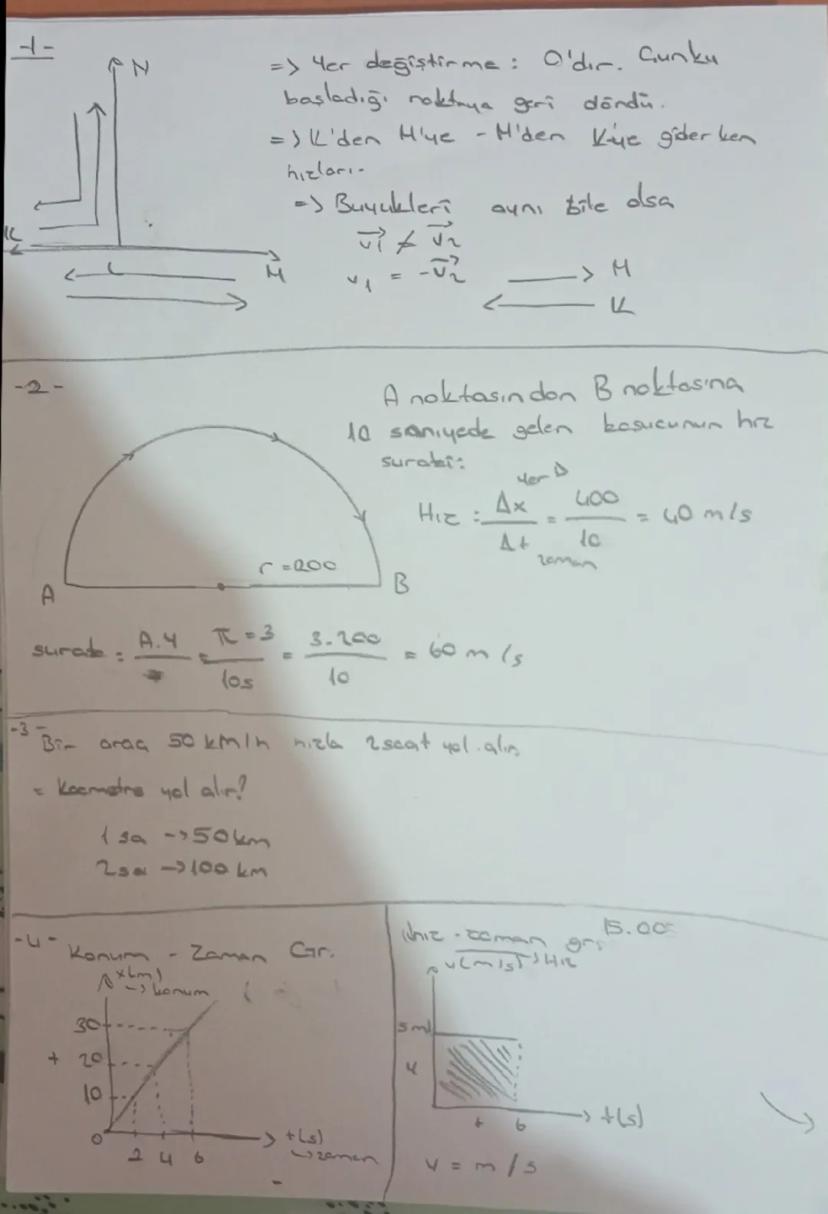 -1-
N
=> Yer değiştirme : 0'dır. Çunku
başladığı noktaya geri döndü.
=> K'den M'ye - M'den K'ye giderken
hızları-
=> Buyukleri aynı bile olsa
v1 ≠ v2
v1 = -v2
K
L
M
M
K
-2-
A noktasından B noktasına
10 saniyede gelen kosucunun hız
surati:
yer Δ
Hız : Δx/Δt = 400/10 = 40 m/s
zaman
r=200
A
B
surate : A.Y = π=3/10s = 3.200/10 = 60 m/s
-3-
Bir araç 50 km/h hızla 2 saat yol alır
= Kaçmetre yol alır?
1 sa -> 50 km
2 sa -> 100 km
-4-
Konum - Zaman Gr.
x(m)
-> konum
30
+ 20
10
0
2 4 6
t(s)
-> zaman
hız - zaman gr.
15.00
v(m/s) -> Hız
5 m
6
t(s)
v = m/s